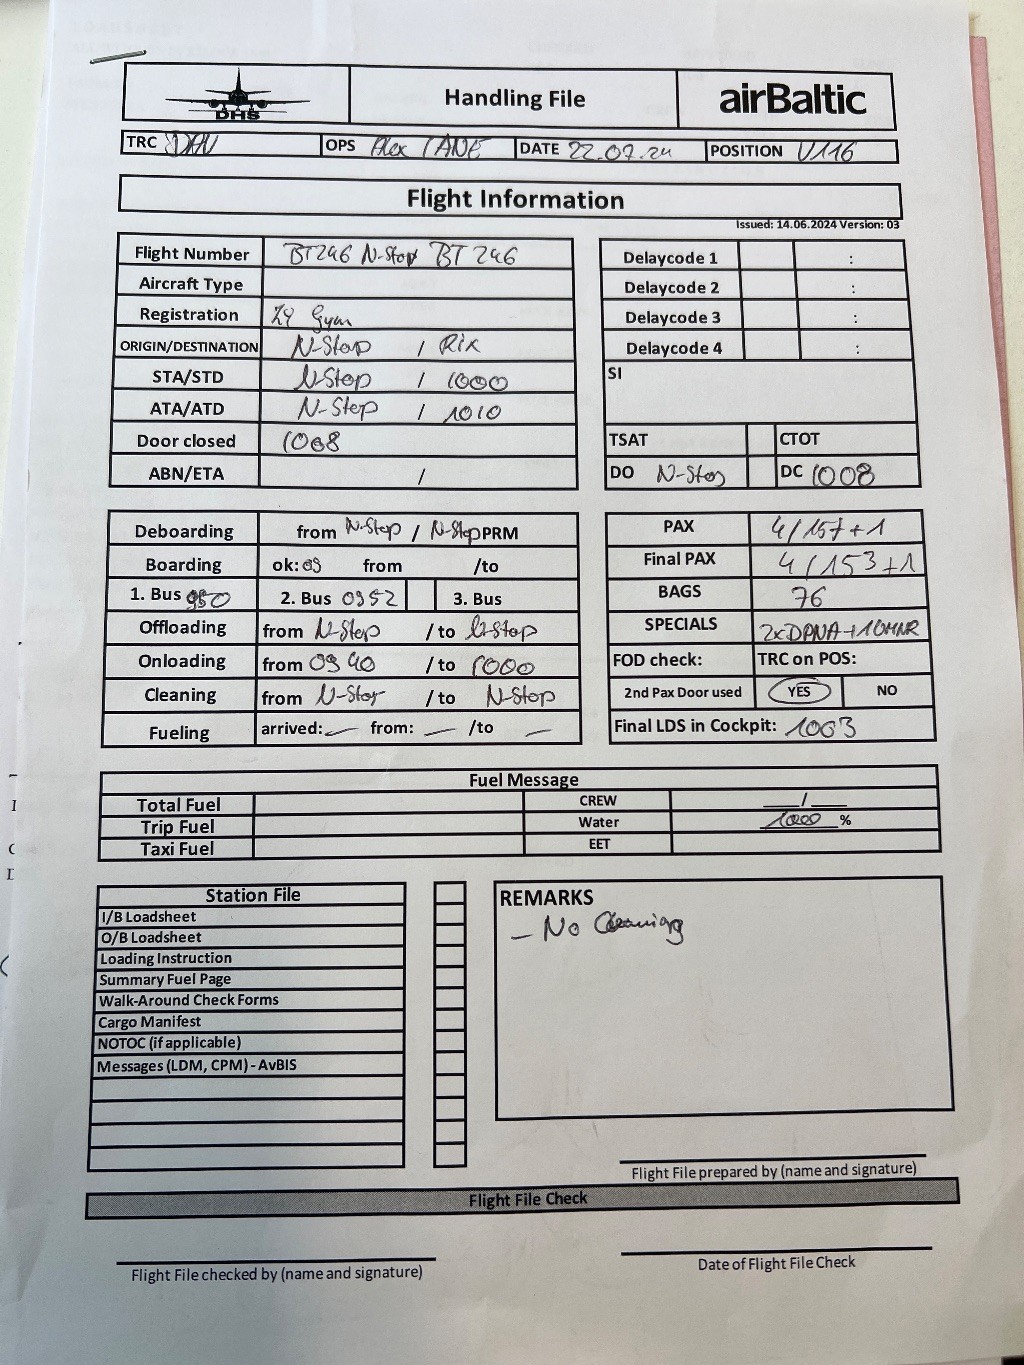 DHS Handling File airBaltic
TRC OPS Alex DATE 22.07.24 POSITION V116
Flight Information
Issued: 14.06.2024 Version: 03
Flight Number BT246 N-Stop BT 246
Aircraft Type
Registration
ORIGIN/DESTINATION N-Stop / RIX
STA/STD N-Stop / 1000
ATA/ATD N-Stop / 1010
Door closed 1008
ABN/ETA /
Delaycode 1 :
Delaycode 2 :
Delaycode 3 :
Delaycode 4 :
SI
TSAT CTOT
DO N-Stop DC 1008
Deboarding from N-Stop / N-Stop PRM
Boarding ok: from /to
1. Bus 950 2. Bus 0952 3. Bus
Offloading from N-Stop / to N-Stop
Onloading from 0940 / to 1000
Cleaning from N-Stop / to N-Stop
Fueling arrived: — from: — /to —
PAX 4/157+1
Final PAX 4/153+1
BAGS 76
SPECIALS 2xDPNA+1
FOD check: TRC on POS:
2nd Pax Door used YES NO
Final LDS in Cockpit: 1003
Fuel Message
Total Fuel CREW ___/___
Trip Fuel Water 1000 %
Taxi Fuel EET
Station File
I/B Loadsheet
O/B Loadsheet
Loading Instruction
Summary Fuel Page
Walk-Around Check Forms
Cargo Manifest
NOTOC (if applicable)
Messages (LDM, CPM) - AvBIS
REMARKS
- No Cleaning
Flight File prepared by (name and signature)
Flight File Check
Flight File checked by (name and signature)
Date of Flight File Check